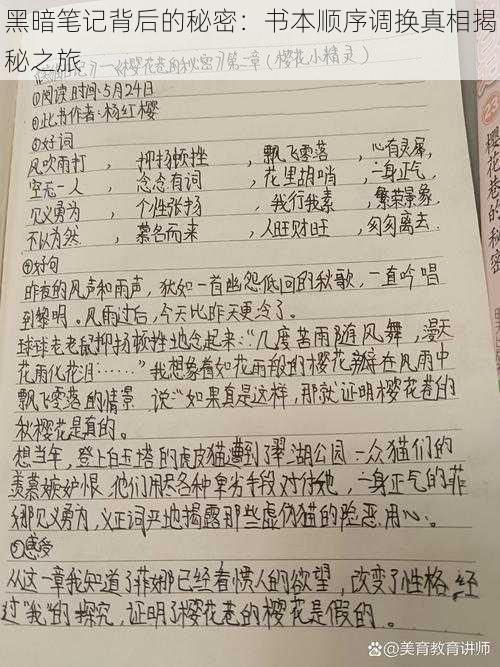 黑暗笔记背后的秘密：书本顺序调换真相揭
秘之旅
《樱花巷的秘密》第一章（樱花小精灵）
①阅读时间：5月24日
②此书作者：杨红樱
③好词
风吹雨打，抑扬顿挫，飘飞零落，心有灵犀，
空无一人，念念有词，花里胡哨，一身正气，
见义勇为，个性张扬，我行我素，繁荣景象，
不以为然，慕名而来，人旺财旺，匆匆离去。
④好句
昨夜的风声和雨声，犹如一首幽怨低回的秋歌，一直吟唱
到黎明。风雨过后，今天比昨天更冷了。
球球老老鼠抑扬顿挫地念起来：“几度苦雨随风舞，漫天
花雨化花泪……”我想象着如花雨般的樱花瓣在风雨中
飘飞零落的情景，说：“如果真是这样，那就证明樱花巷的
秋樱花是真的。
想当年，登上白玉塔的虎皮猫遭到了翠湖公园一众猫们的
羡慕嫉妒恨，他们用尽各种卑劣手段对付她，一身正气的菲
娜见义勇为，义正词严地揭露那些虚伪猫的险恶用心。
⑤感受
从这一章我知道了菲娜已经看惯人的欲望，改变了性格，经
过“我”的探究，证明了樱花巷的樱花是假的。
樱花巷的秘密
@美育教育讲师